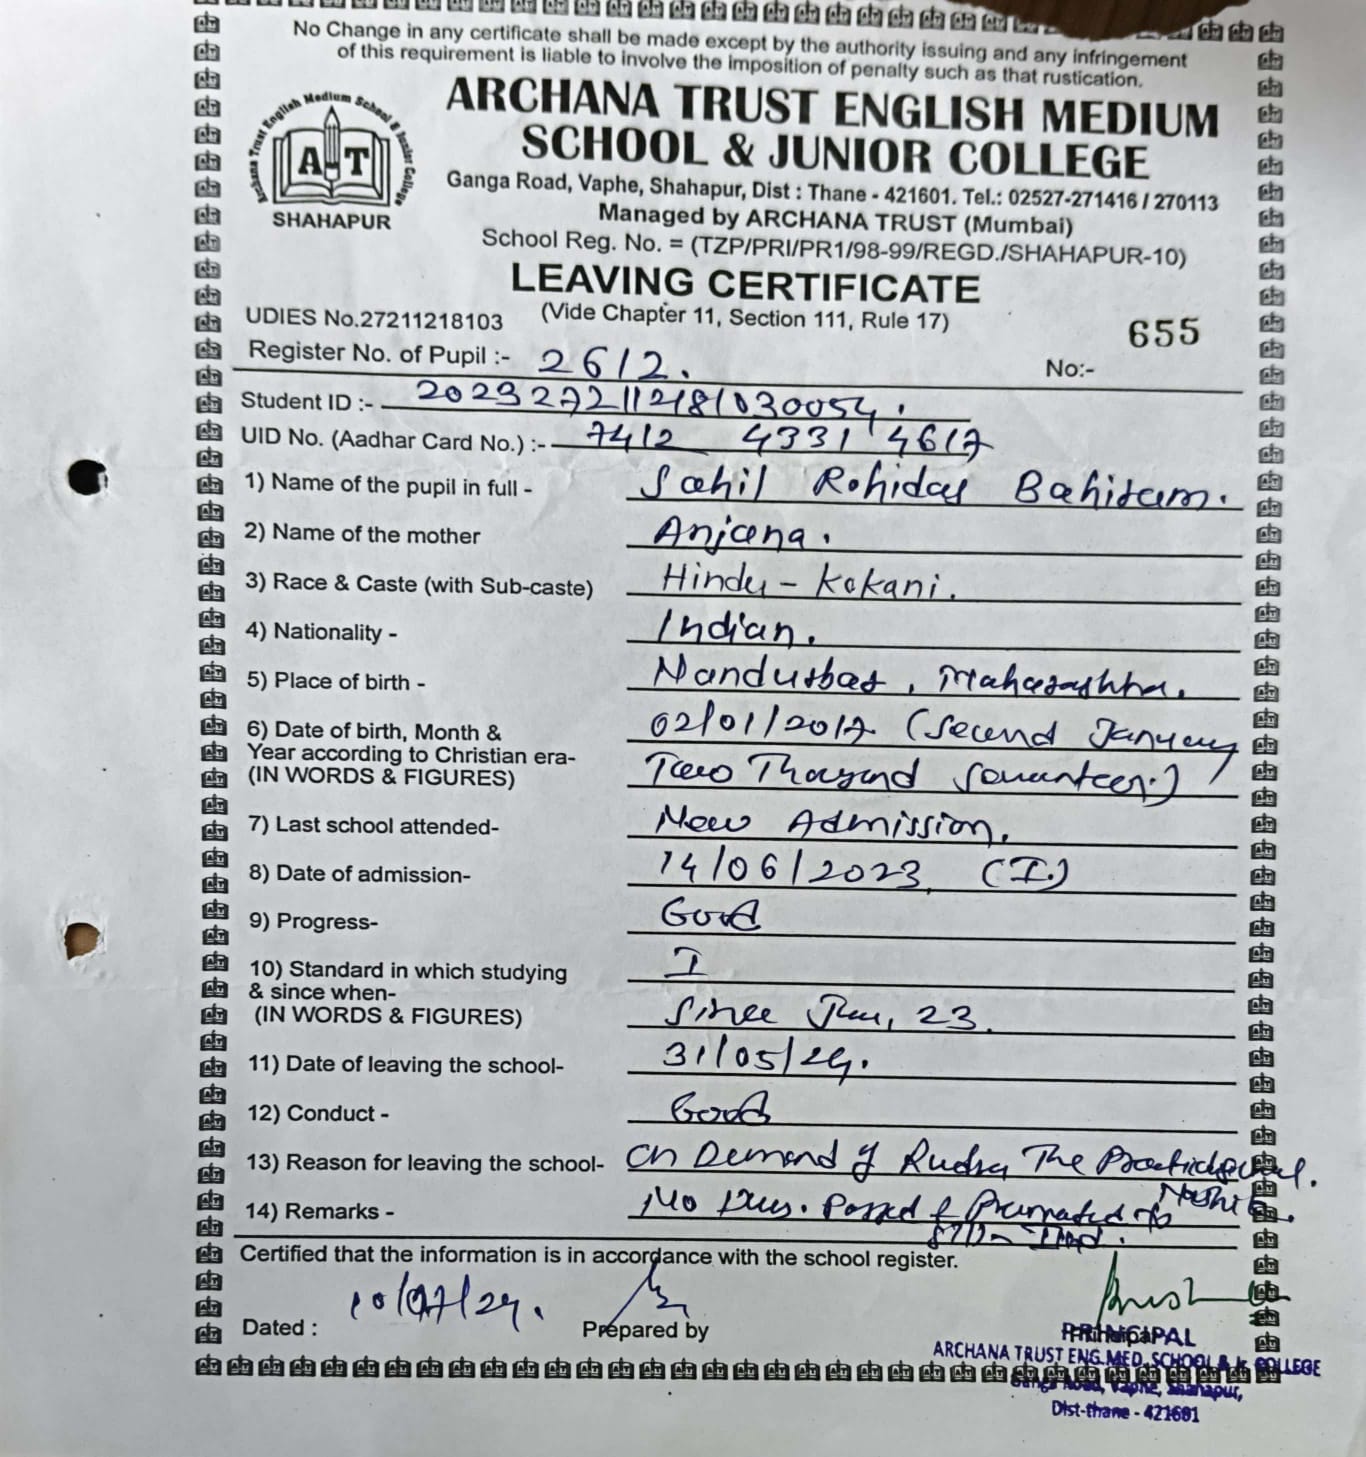 No Change in any certificate shall be made except by the authority issuing and any infringement
of this requirement is liable to involve the imposition of penalty such as that rustication.
Archana Trust English Medium School & Junior College
A T
SHAHAPUR
ARCHANA TRUST ENGLISH MEDIUM
SCHOOL & JUNIOR COLLEGE
Ganga Road, Vaphe, Shahapur, Dist : Thane - 421601. Tel.: 02527-271416 / 270113
Managed by ARCHANA TRUST (Mumbai)
School Reg. No. = (TZP/PRI/PR1/98-99/REGD./SHAHAPUR-10)
LEAVING CERTIFICATE
UDIES No.27211218103 (Vide Chapter 11, Section 111, Rule 17) 655
Register No. of Pupil :- 2612. No:-
Student ID :- 2023272112181030054.
UID No. (Aadhar Card No.) :- 7412 4331 4617
1) Name of the pupil in full - Sahil Rohidas Bahiram.
2) Name of the mother Anjana.
3) Race & Caste (with Sub-caste) Hindu - Kokani.
4) Nationality - Indian.
5) Place of birth - Nandurbar, Maharashtra.
6) Date of birth, Month & 02/01/2017 (Second January
Year according to Christian era- Two Thousand Seventeen.)
(IN WORDS & FIGURES)
7) Last school attended- New Admission.
8) Date of admission- 14/06/2023 (I.)
9) Progress- Good
10) Standard in which studying I
& since when-
(IN WORDS & FIGURES) Since Jun, 23.
11) Date of leaving the school- 31/05/24.
12) Conduct - Good
13) Reason for leaving the school- On Demand of Rudra The Practical
Nashik.
14) Remarks - No Dues. Passed & Promated to
STD - IInd.
Certified that the information is in accordance with the school register.
Dated : 10/07/24. Prepared by Principal
PRINCIPAL
ARCHANA TRUST ENG.MED. SCHOOL & Jr. COLLEGE
Ganga Road, Vaphe, Shahapur,
Dist-thane - 421601